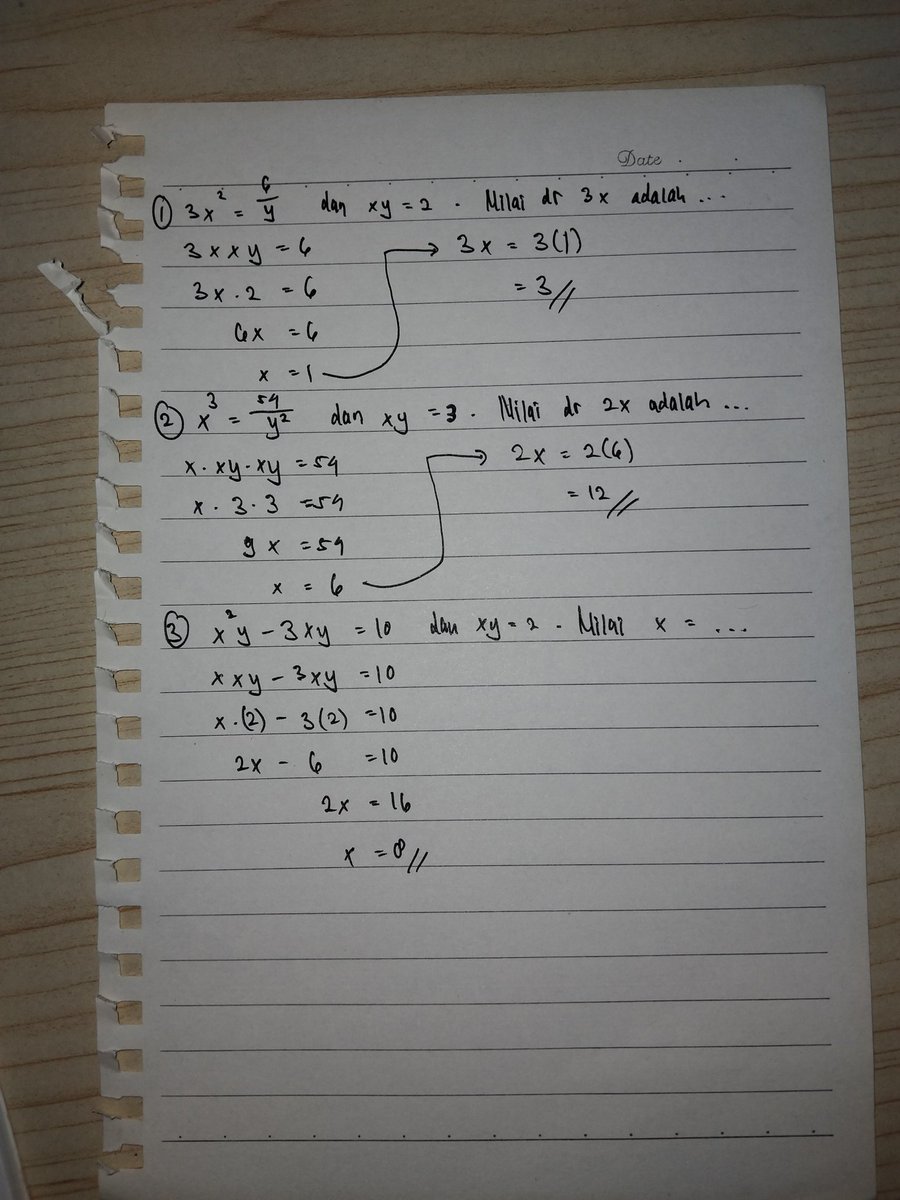 Date
① 3x² = 6/y dan xy = 2 . Nilai dr 3x adalah ...
3 x x y = 6 → 3x = 3(1)
3x . 2 = 6 = 3 //
6x = 6
x = 1
② x³ = 54/y² dan xy = 3 . Nilai dr 2x adalah ...
x . xy . xy = 54 → 2x = 2(6)
x . 3 . 3 = 54 = 12 //
9x = 54
x = 6
③ x²y - 3xy = 10 dan xy = 2 . Nilai x = ...
x x y - 3xy = 10
x . (2) - 3(2) = 10
2x - 6 = 10
2x = 16
x = 8 //